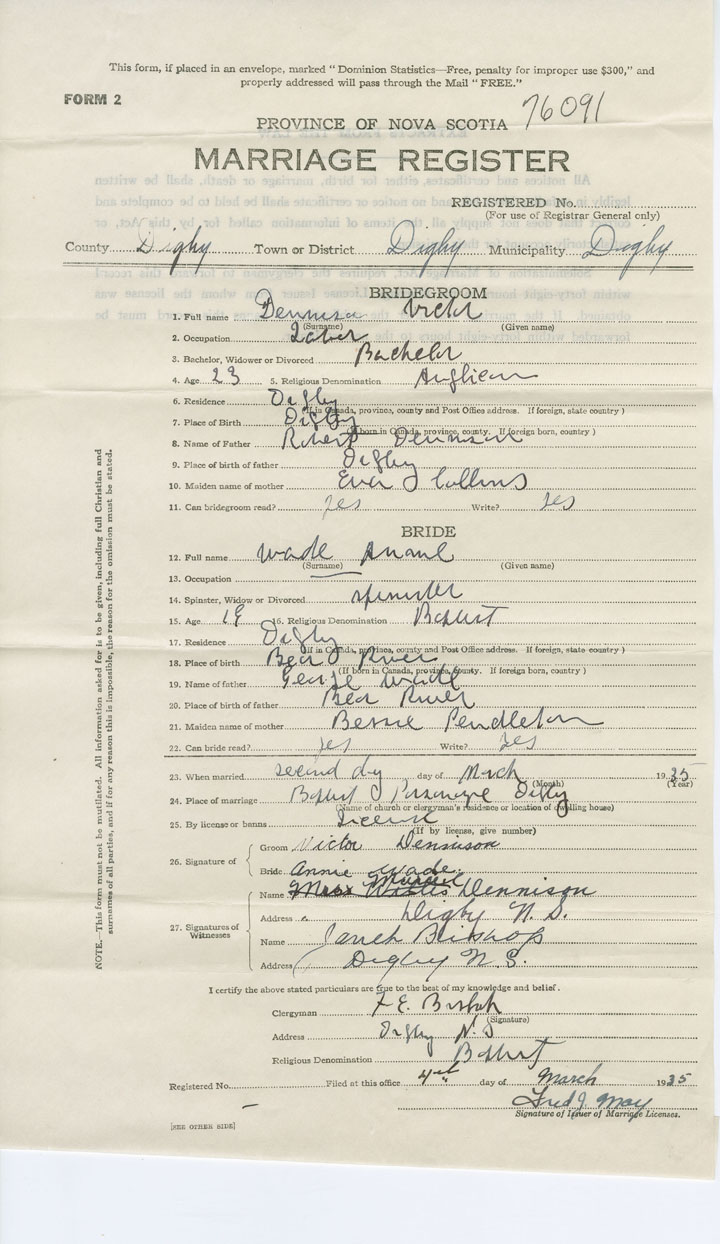 This form, if placed in an envelope, marked " Dominion Statistics—Free, penalty for improper use $300," and
properly addressed will pass through the Mail " FREE."
FORM 2
76091
PROVINCE OF NOVA SCOTIA
MARRIAGE REGISTER
REGISTERED No.
(For use of Registrar General only)
County Digby Town or District Digby Municipality Digby
BRIDEGROOM
1. Full name Dennison Victor
(Surname) (Given name)
2. Occupation Labor
3. Bachelor, Widower or Divorced Bachelor
4. Age 23 5. Religious Denomination Anglican
6. Residence Digby
(If in Canada, province, county and Post Office address. If foreign, state country )
7. Place of Birth Digby
(If born in Canada, province, county. If foreign born, country )
8. Name of Father Robert Dennison
9. Place of birth of father Digby
10. Maiden name of mother Eva J Collins
11. Can bridegroom read? yes Write? yes
BRIDE
12. Full name Wade
(Surname) (Given name)
13. Occupation —
14. Spinster, Widow or Divorced Spinster
15. Age 19 16. Religious Denomination Baptist
17. Residence Digby
(If in Canada, province, county and Post Office address. If foreign, state country )
18. Place of birth Bear River
(If born in Canada, province, county. If foreign born, country )
19. Name of father George Wade
20. Place of birth of father Bear River
21. Maiden name of mother Bessie Pendleton
22. Can bride read? yes Write? yes
23. When married second dy day of Mrch 1935
(Month) (Year)
24. Place of marriage Baptist Parsonage Digby
(Name of church or clergyman's residence or location of dwelling house)
25. By license or banns License
(If by license, give number)
26. Signature of
Groom Victor Dennison
Bride Annie Wade.
27. Signatures of Witnesses
Name Dennison
Address Digby N. S.
Name Bishop
Address Digby N. S.
I certify the above stated particulars are true to the best of my knowledge and belief.
Clergyman F. E. Bishop
(Signature)
Address Digby N.S
Religious Denomination Baptist
Registered No. Filed at this office 4th day of March 1935
Fred J. May
Signature of Issuer of Marriage Licenses.
[SEE OTHER SIDE]
NOTE.—This form must not be mutilated. All information asked for is to be given, including full Christian and
surnames of all parties, and if for any reason this is impossible, the reason for the omission must be stated.